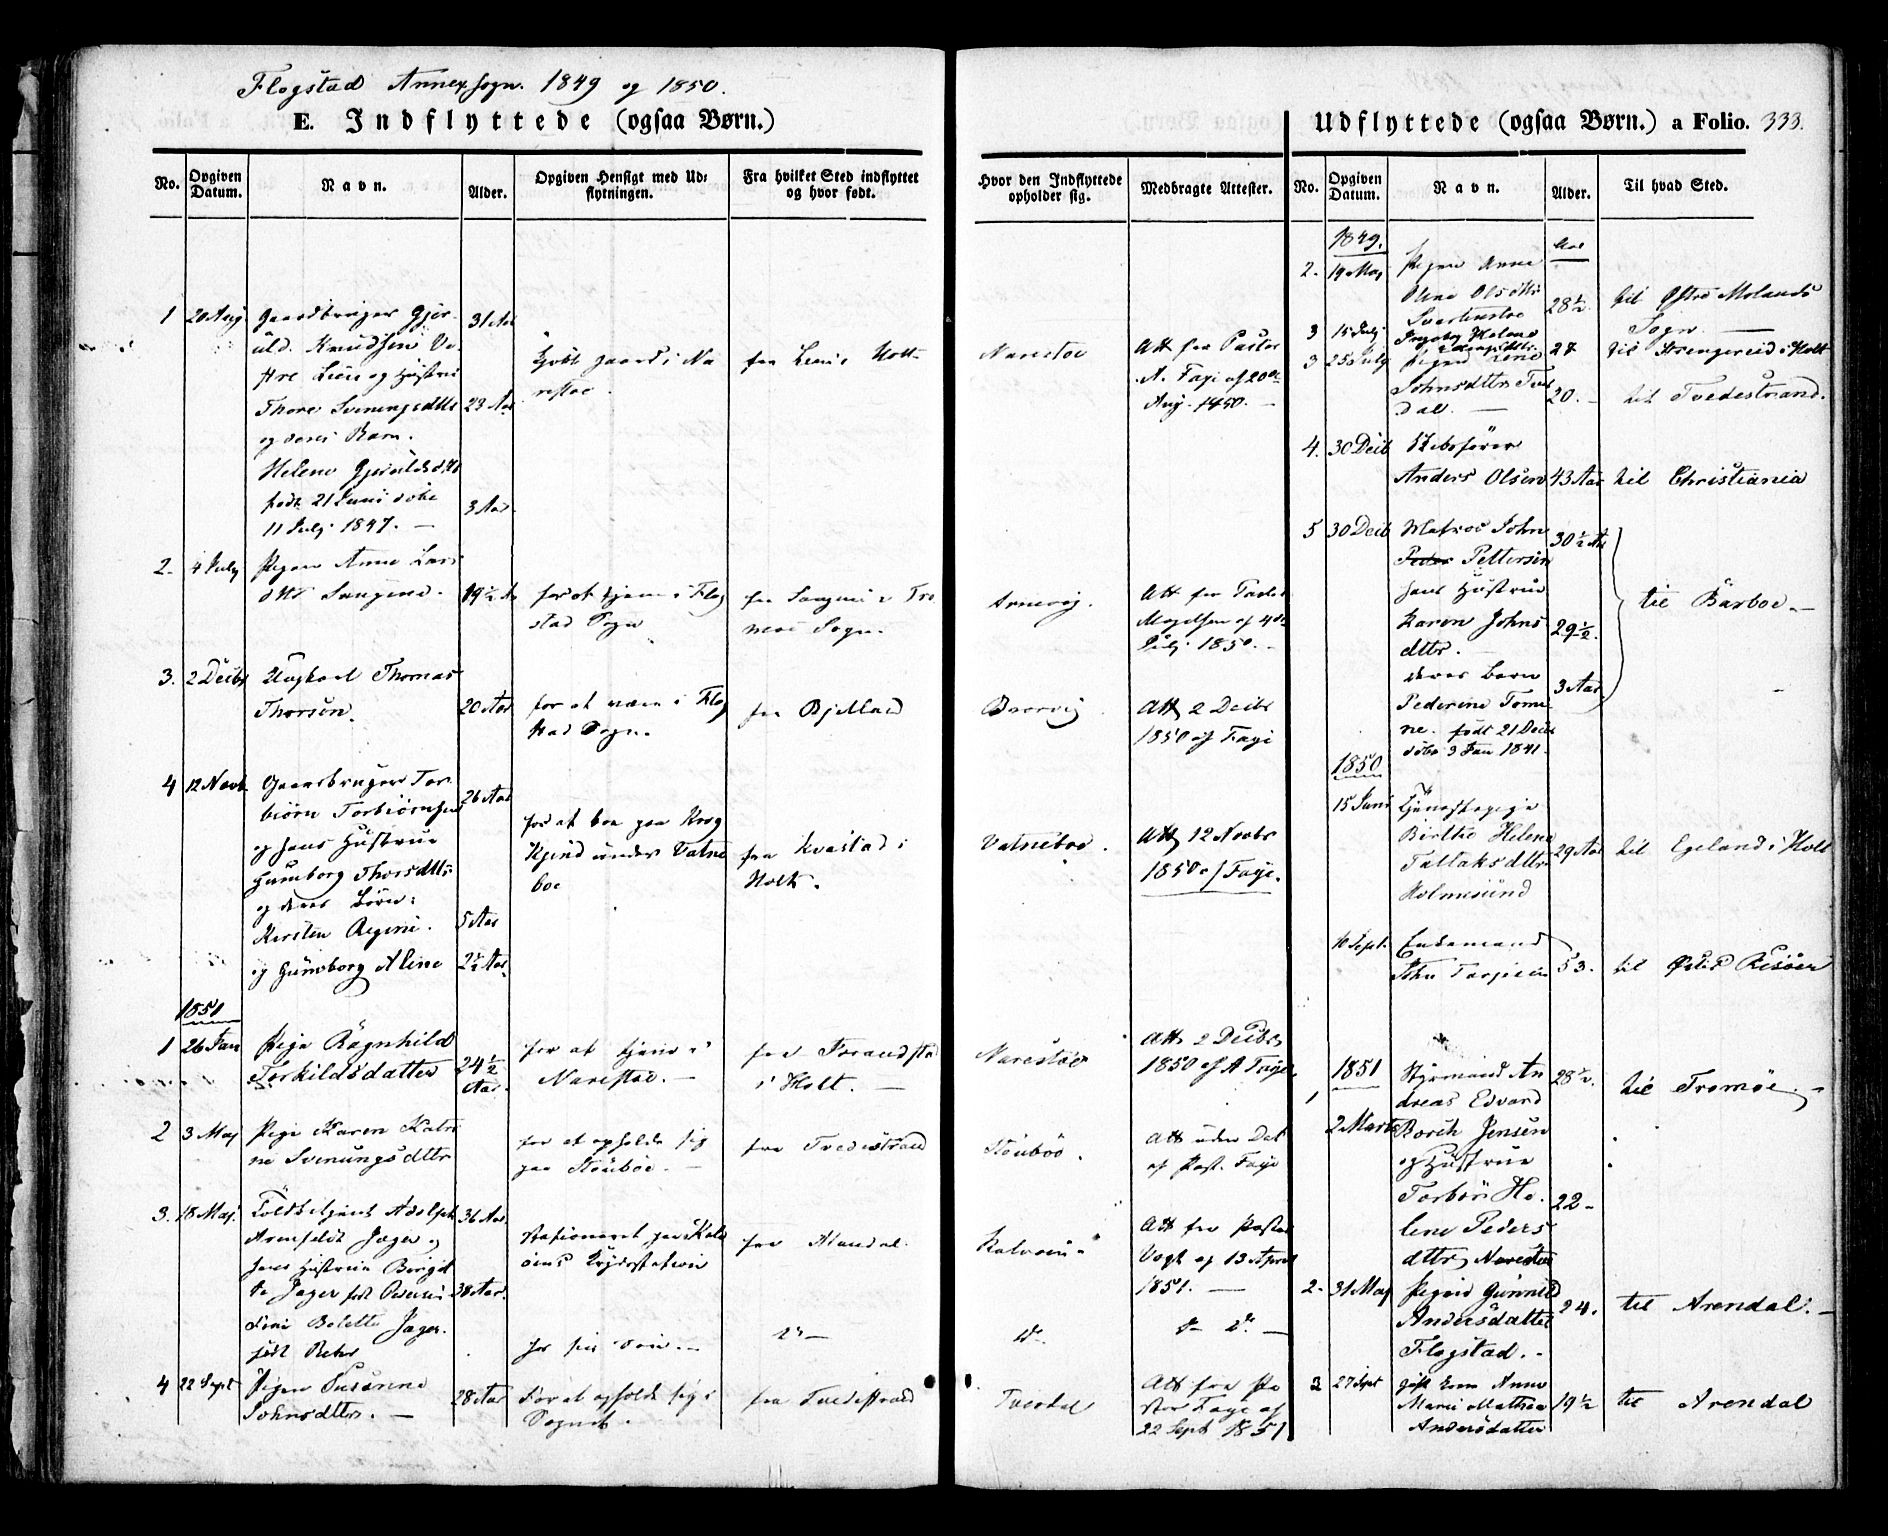 Flogstad Annexsogn. 1849 og 1850.
E. Indflyttede (ogsaa Børn.)
No.
Opgiven Datum.
Navn.
Alder.
Opgiven Hensigt med Ud=
flytningen.
Fra hvilket Sted indflyttet
og hvor født.
Hvor den Indflyttede
opholder sig.
Medbragte Attester.
1 20 Aug Gaardbruger Gjer-
uld Knudsen
og Hustrue
31 Aar
Thore Sveningsdttr 23 Aar
og deres Barn.
Helene Gjeruldsdttr
født 21 Juni døbt
11 Julj 1847. — 3 Aar
fra Holt
Narestøe
Att fra Pastor
A. Faye af 20de
Aug. 1850. —
2. 4 July Pigen Anne Lars
dttr 19½ Aar
for at tjene i Flog
stad Sogn
fra Tro
møe Sogn.
Arnevig.
Att fra Pastor
Magelsen af 4de
Julj 1850. —
3. 2 Decbr Ungkarl Thomas
Thorsen. 20 Aar
for at være i Flog
stad Sogn.
fra Bjelland
Borvig
Att 2 Decbr
1850 af Faye
4 12 Novb Gaardbruger Tor
biørn Torbiørnsen 26 Aar
og hans Hustrue
Gunborg Thorsdttr
og deres Børn:
Kirsten Regine. 5 Aar
og Gunborg Aline 2½ Aar
for at boe paa
under Vatne
boe
fra Kvastad i
Holt.
Vatneboe.
Att 12 Novbr
1850 af Faye.
1851
1 26 Jan Pige Ragnhild
Torkildsdatter 24½
Aar.
for at tjene i
Narestøe. —
i Holt. —
Narestøe
Att. 2 Decbr
1850 af A Faye.
2 3 Maj Pige Karen Katri
ne Svenungsdttr
for at opholde sig
paa Stoubøe. —
fra Tvedestrand
Stoubøe.
Att uden Dat
af Past. Faye
3. 18 Maj. Toldbetjent Adolph 36 Aar
Arenfeldt Jæger og
hans Hustrue Birgit
te Jæger født 38 Aar.
Bolette Jæger.
født
stationeret paa Kalv
øens Krydsstation
fra Mandal.
Kalvøen
Att fra Pastor
Vogt af 13 April
1851. —
do —
do
do
4 22 Sept Pigen Susanne
Johnsdttr. — 28 Aar
For at opholde sig i
Sognet.
fra Tvedestrand
Tverdal
Att fra Pa
stor Faye af
22 Sept 1851
Udflyttede (ogsaa Børn.) a Folio. 333.
No.
Opgiven Datum.
Navn.
Alder.
Til hvad Sted.
1849. Aar
2. 19 Maj Pigen Anne
Oline Olsdttr 28½ til Østre Molands
Sogn —
3 15 Julj Ingeborg Helene 27 til Strengereid i Holt
3 25 July Pigen
Johnsdttr Tver
dal. — 20. — til Tvedestrand.
4. 30 Decb Skibsfører
Anders Olsen 43 Aar til Christiania
5 30 Decb Matros John 30½ Aar
Pettersen
hans Hustrue
Karen Johns
dttr. 29½.
til Barboe. —
deres barn 3 Aar
Pederine Tomi
ne. født 21 Decb
døbt 3 Jan 1841.
1850
15 Juni Tjenestepige
Birthe Helene
Tallaksdttr 29 Aar til Egeland i Holt
Holmesund
10 Sept. Enkemand
John Torjesen 53. til Østre Risøer
1851
1 Styrmand An 28½. til Tromøe. —
dreas Edvard
2 Marts Borch Jensen
og Hustrue
Torbør He- 22 —
lene Peders
dttr, Narestøe
2. 31 Maj Pigen Gunnild
Andersdatter 24. til Arendal. —
Flogstad. —
3 27 Sept Anne
Marie Mathea 19½ til Arendal
Andersdatter